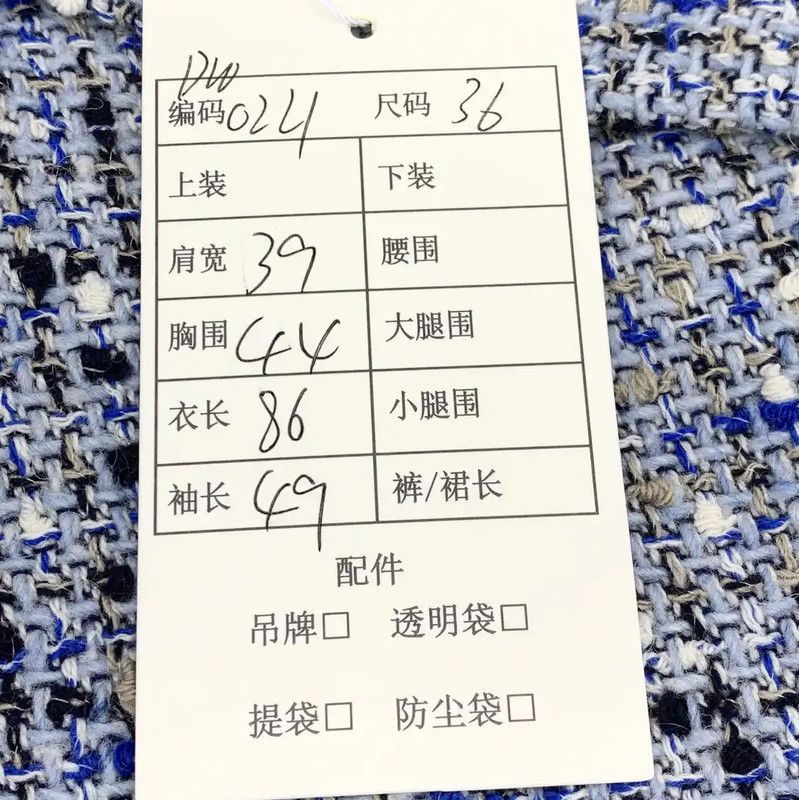 DW
编码 024 尺码 36
上装 下装
肩宽 39 腰围
胸围 44 大腿围
衣长 86 小腿围
袖长 49 裤/裙长
配件
吊牌□ 透明袋□
提袋□ 防尘袋□